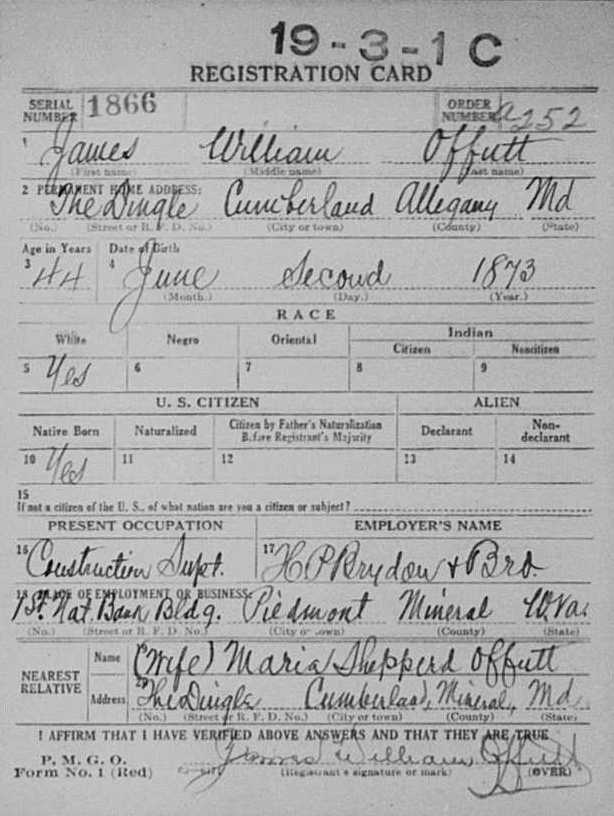 19-3-1 C
REGISTRATION CARD
SERIAL NUMBER 1866 ORDER NUMBER a252
1 James William Offutt
(First name) (Middle name) (Last name)
2 PERMANENT HOME ADDRESS:
The Dingle Cumberland Allegany Md
(No.) (Street or R. F. D. No.) (City or town) (County) (State)
Age in Years Date of Birth
3 44 4 June Second 1873
(Month.) (Day.) (Year.)
RACE
White Negro Oriental Indian
Citizen Noncitizen
5 Yes 6 7 8 9
U. S. CITIZEN ALIEN
Native Born Naturalized Citizen by Father's Naturalization Before Registrant's Majority Declarant Non-declarant
10 Yes 11 12 13 14
15
If not a citizen of the U. S., of what nation are you a citizen or subject?
PRESENT OCCUPATION EMPLOYER'S NAME
16 Construction Supt. 17 H. P. Brydon & Bro.
18 PLACE OF EMPLOYMENT OR BUSINESS:
1st. Nat. Bank Bldg. Piedmont Mineral W.Va.
(No.) (Street or R. F. D. No.) (City or town) (County) (State)
NEAREST RELATIVE
Name (Wife) Maria Shepperd Offutt
Address The Dingle Cumberland, Mineral, Md.
(No.) (Street or R. F. D. No.) (City or town) (County) (State)
I AFFIRM THAT I HAVE VERIFIED ABOVE ANSWERS AND THAT THEY ARE TRUE
P. M. G. O.
Form No. 1 (Red) James William Offutt
(Registrant's signature or mark) (OVER)